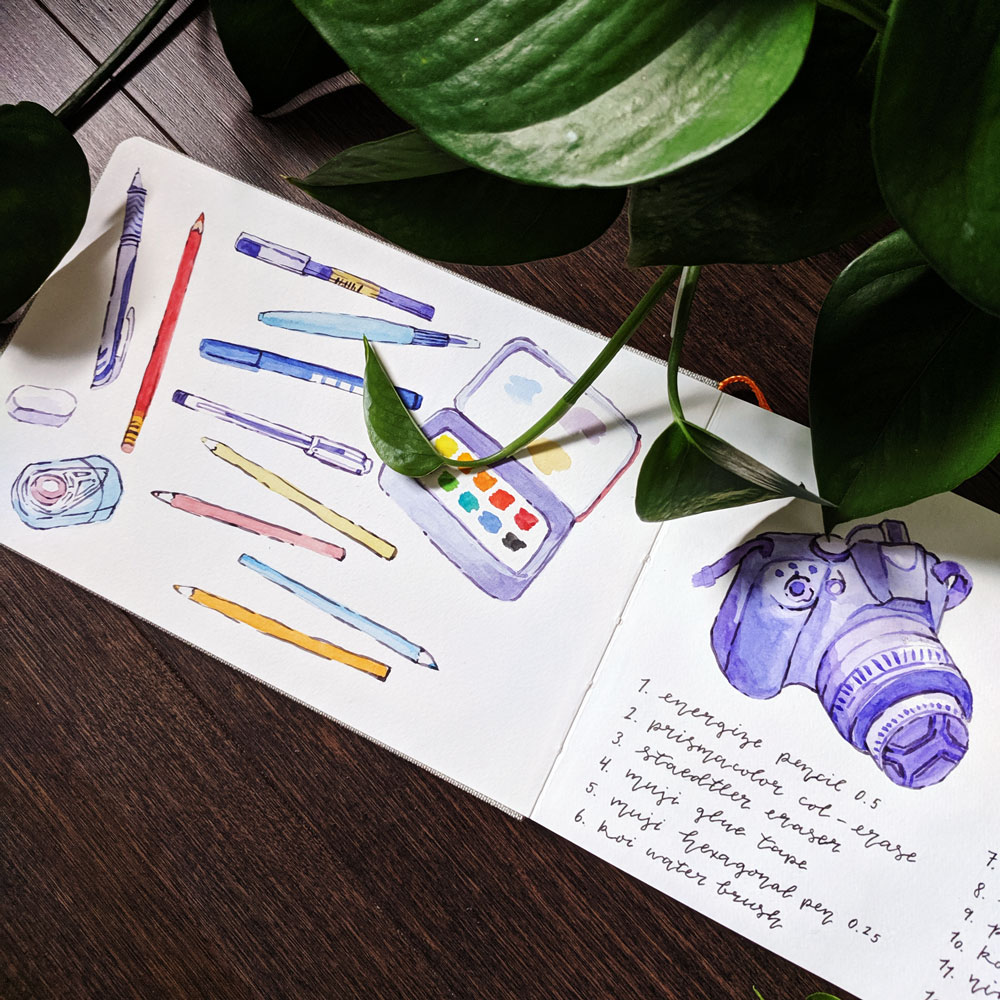 1. energize pencil 0.5
2. prismacolor col-erase
3. staedtler eraser
4. muji glue tape
5. muji hexagonal pen 0.25
6. koi water brush
7.
8.
9.
10.
11.